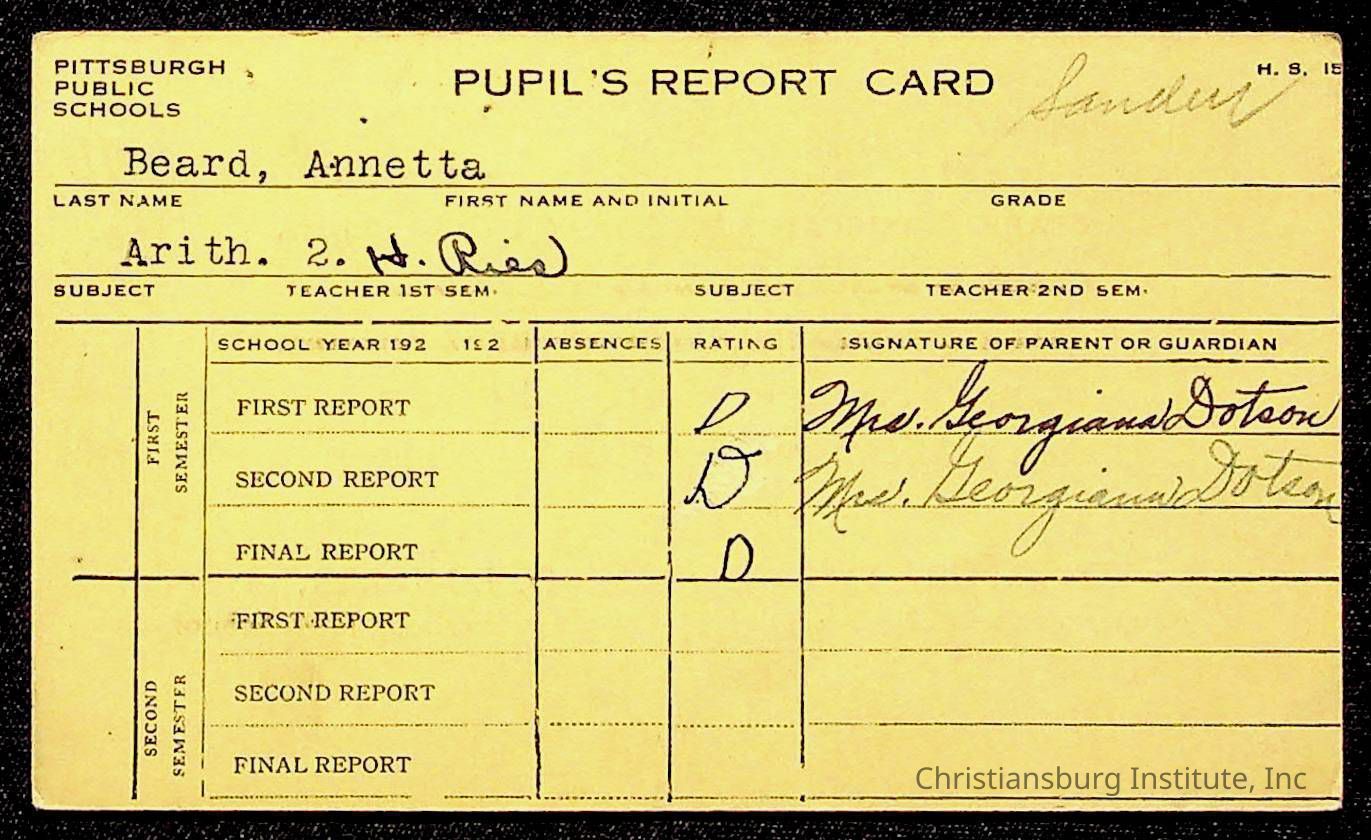 PITTSBURGH
PUBLIC
SCHOOLS
PUPIL'S REPORT CARD
H. S. 15
Beard, Annetta
LAST NAME FIRST NAME AND INITIAL GRADE
Arith. 2. H. Ries
SUBJECT TEACHER 1ST SEM. SUBJECT TEACHER 2ND SEM.
SCHOOL YEAR 192 192 ABSENCES RATING SIGNATURE OF PARENT OR GUARDIAN
FIRST SEMESTER
FIRST REPORT D Mrs. Georgiana Dotson
SECOND REPORT D Mrs. Georgiana Dotson
FINAL REPORT D
SECOND SEMESTER
FIRST REPORT
SECOND REPORT
FINAL REPORT
Christiansburg Institute, Inc